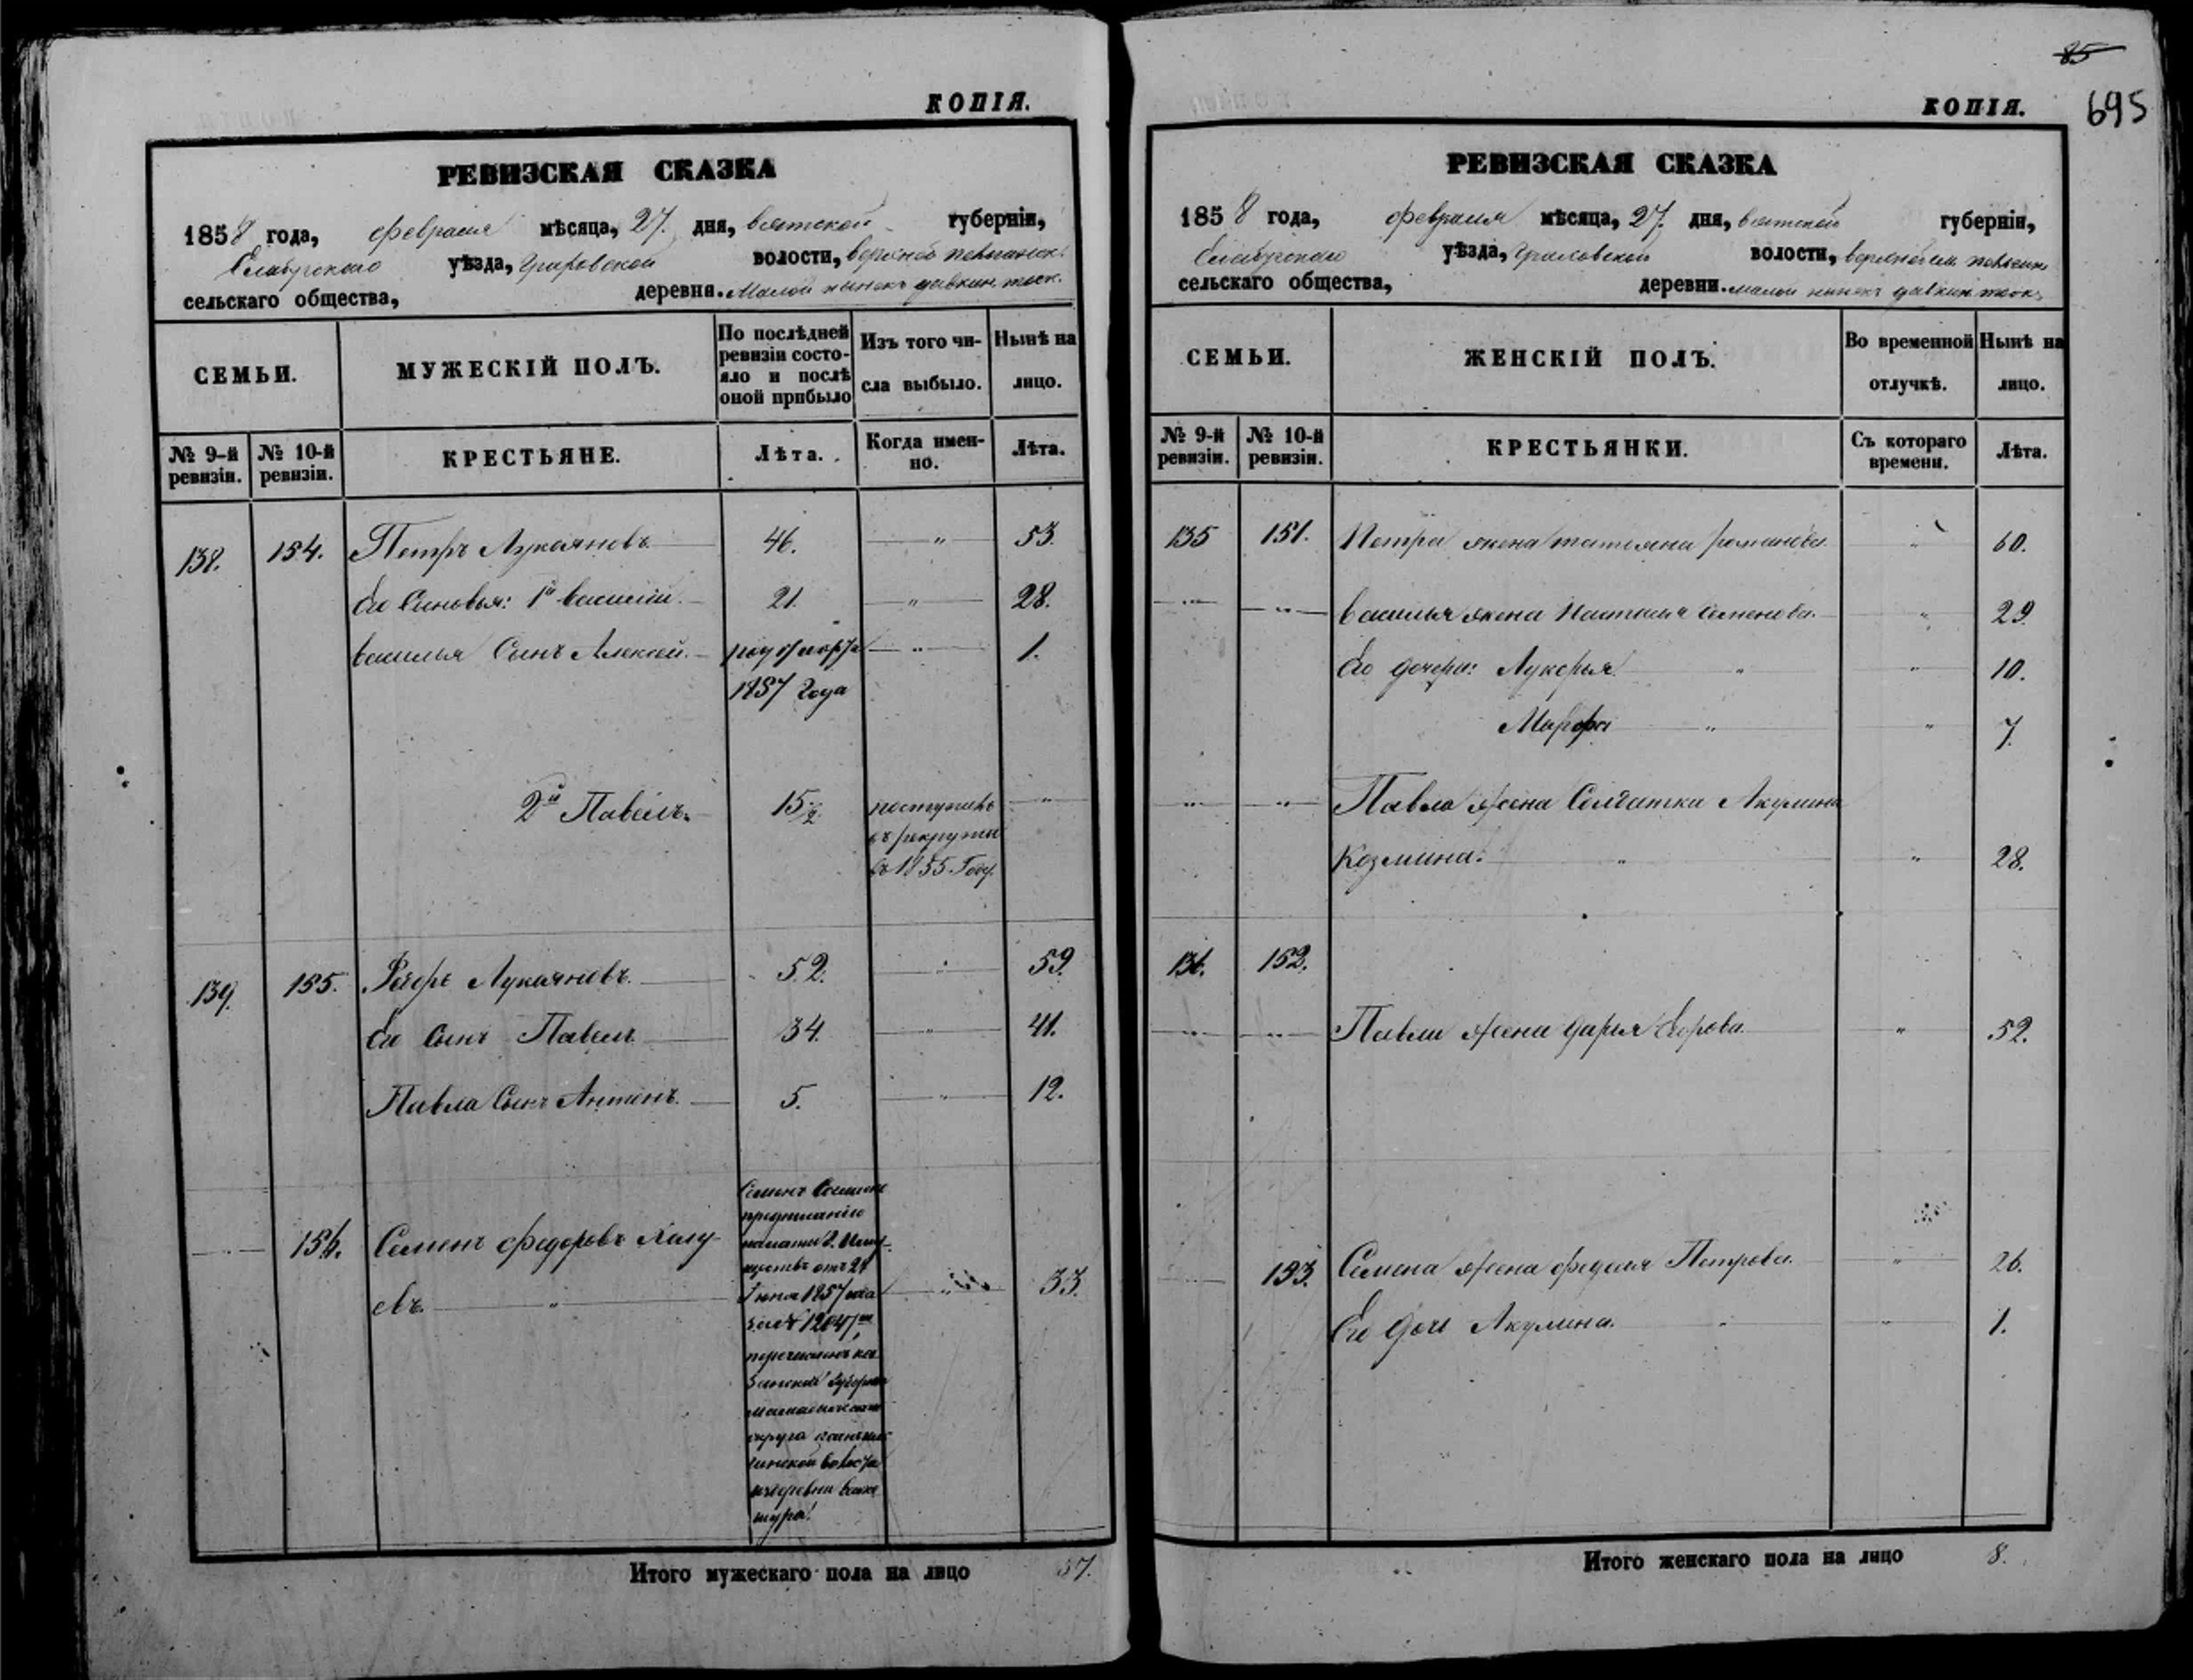 КОПІЯ.
РЕВИЗСКАЯ СКАЗКА
1858 года, февраля мѣсяца, 27. дня, вятской губерніи,
Елабугскаго уѣзда, Граховской волости,
сельскаго общества, деревни. Малой
СЕМЬИ.
МУЖЕСКІЙ ПОЛЪ.
По послѣдней ревизіи состо-
яло и послѣ
оной прибыло
Изъ того чи-
сла выбыло.
Нынѣ на
лицо.
№ 9-й ревизіи.
№ 10-й ревизіи.
КРЕСТЬЯНЕ.
Лѣта.
Когда имен-
но.
Лѣта.
138. 154. Петръ Лукояновъ 46. " 53.
Его Сыновья: 1й василій. 21. " 28.
василья Сынъ Алексей. " 1.
1857 Года
2й Павелъ. 15½ поступилъ "
въ рекруты
въ 1855. Году.
139. 155. Лукояновъ 52. " 59.
Его Сынъ Павелъ 34. " 41.
Павла Сынъ Антонъ. 5. " 12.
156. Семенъ Федоровъ
предписанію
палаты Г. Иму-
ществъ отъ 24
Іюня 1857 года
за № 12047м
перечисленъ ка-
занской Губерніи
округа
волости
изъ деревни
" 33.
Итого мужескаго пола на лицо
85
695
КОПІЯ.
РЕВИЗСКАЯ СКАЗКА
1858 года, февраля мѣсяца, 27. дня, вятской губерніи,
Елабугскаго уѣзда, Граховской волости,
сельскаго общества, деревни. малой
СЕМЬИ.
ЖЕНСКІЙ ПОЛЪ.
Во временной
отлучкѣ.
Нынѣ на
лицо.
№ 9-й ревизіи.
№ 10-й ревизіи.
КРЕСТЬЯНКИ.
Съ котораго
времени.
Лѣта.
135 151. Петра жена татьяна романова " 60.
василья жена Наталья Семенова. " 29.
Его дочери: Лукерья " 10.
Марфа " 7.
Павла жена Солдатка Акулина
Козмина. " 28.
136. 152.
Павла жена дарья Егорова. " 52.
153. Семена жена Петрова. " 26.
Его дочь Акулина. " 1.
Итого женскаго пола на лицо 8.